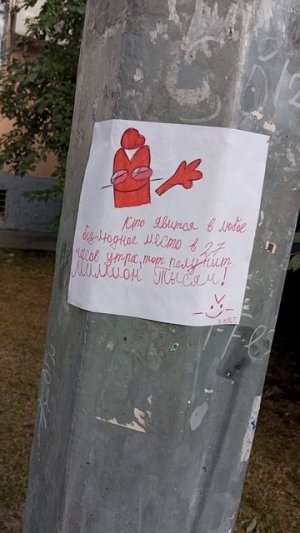 Кто явится в любое
безлюдное место в 27
часов утра, тот получит
миллион тысяч!